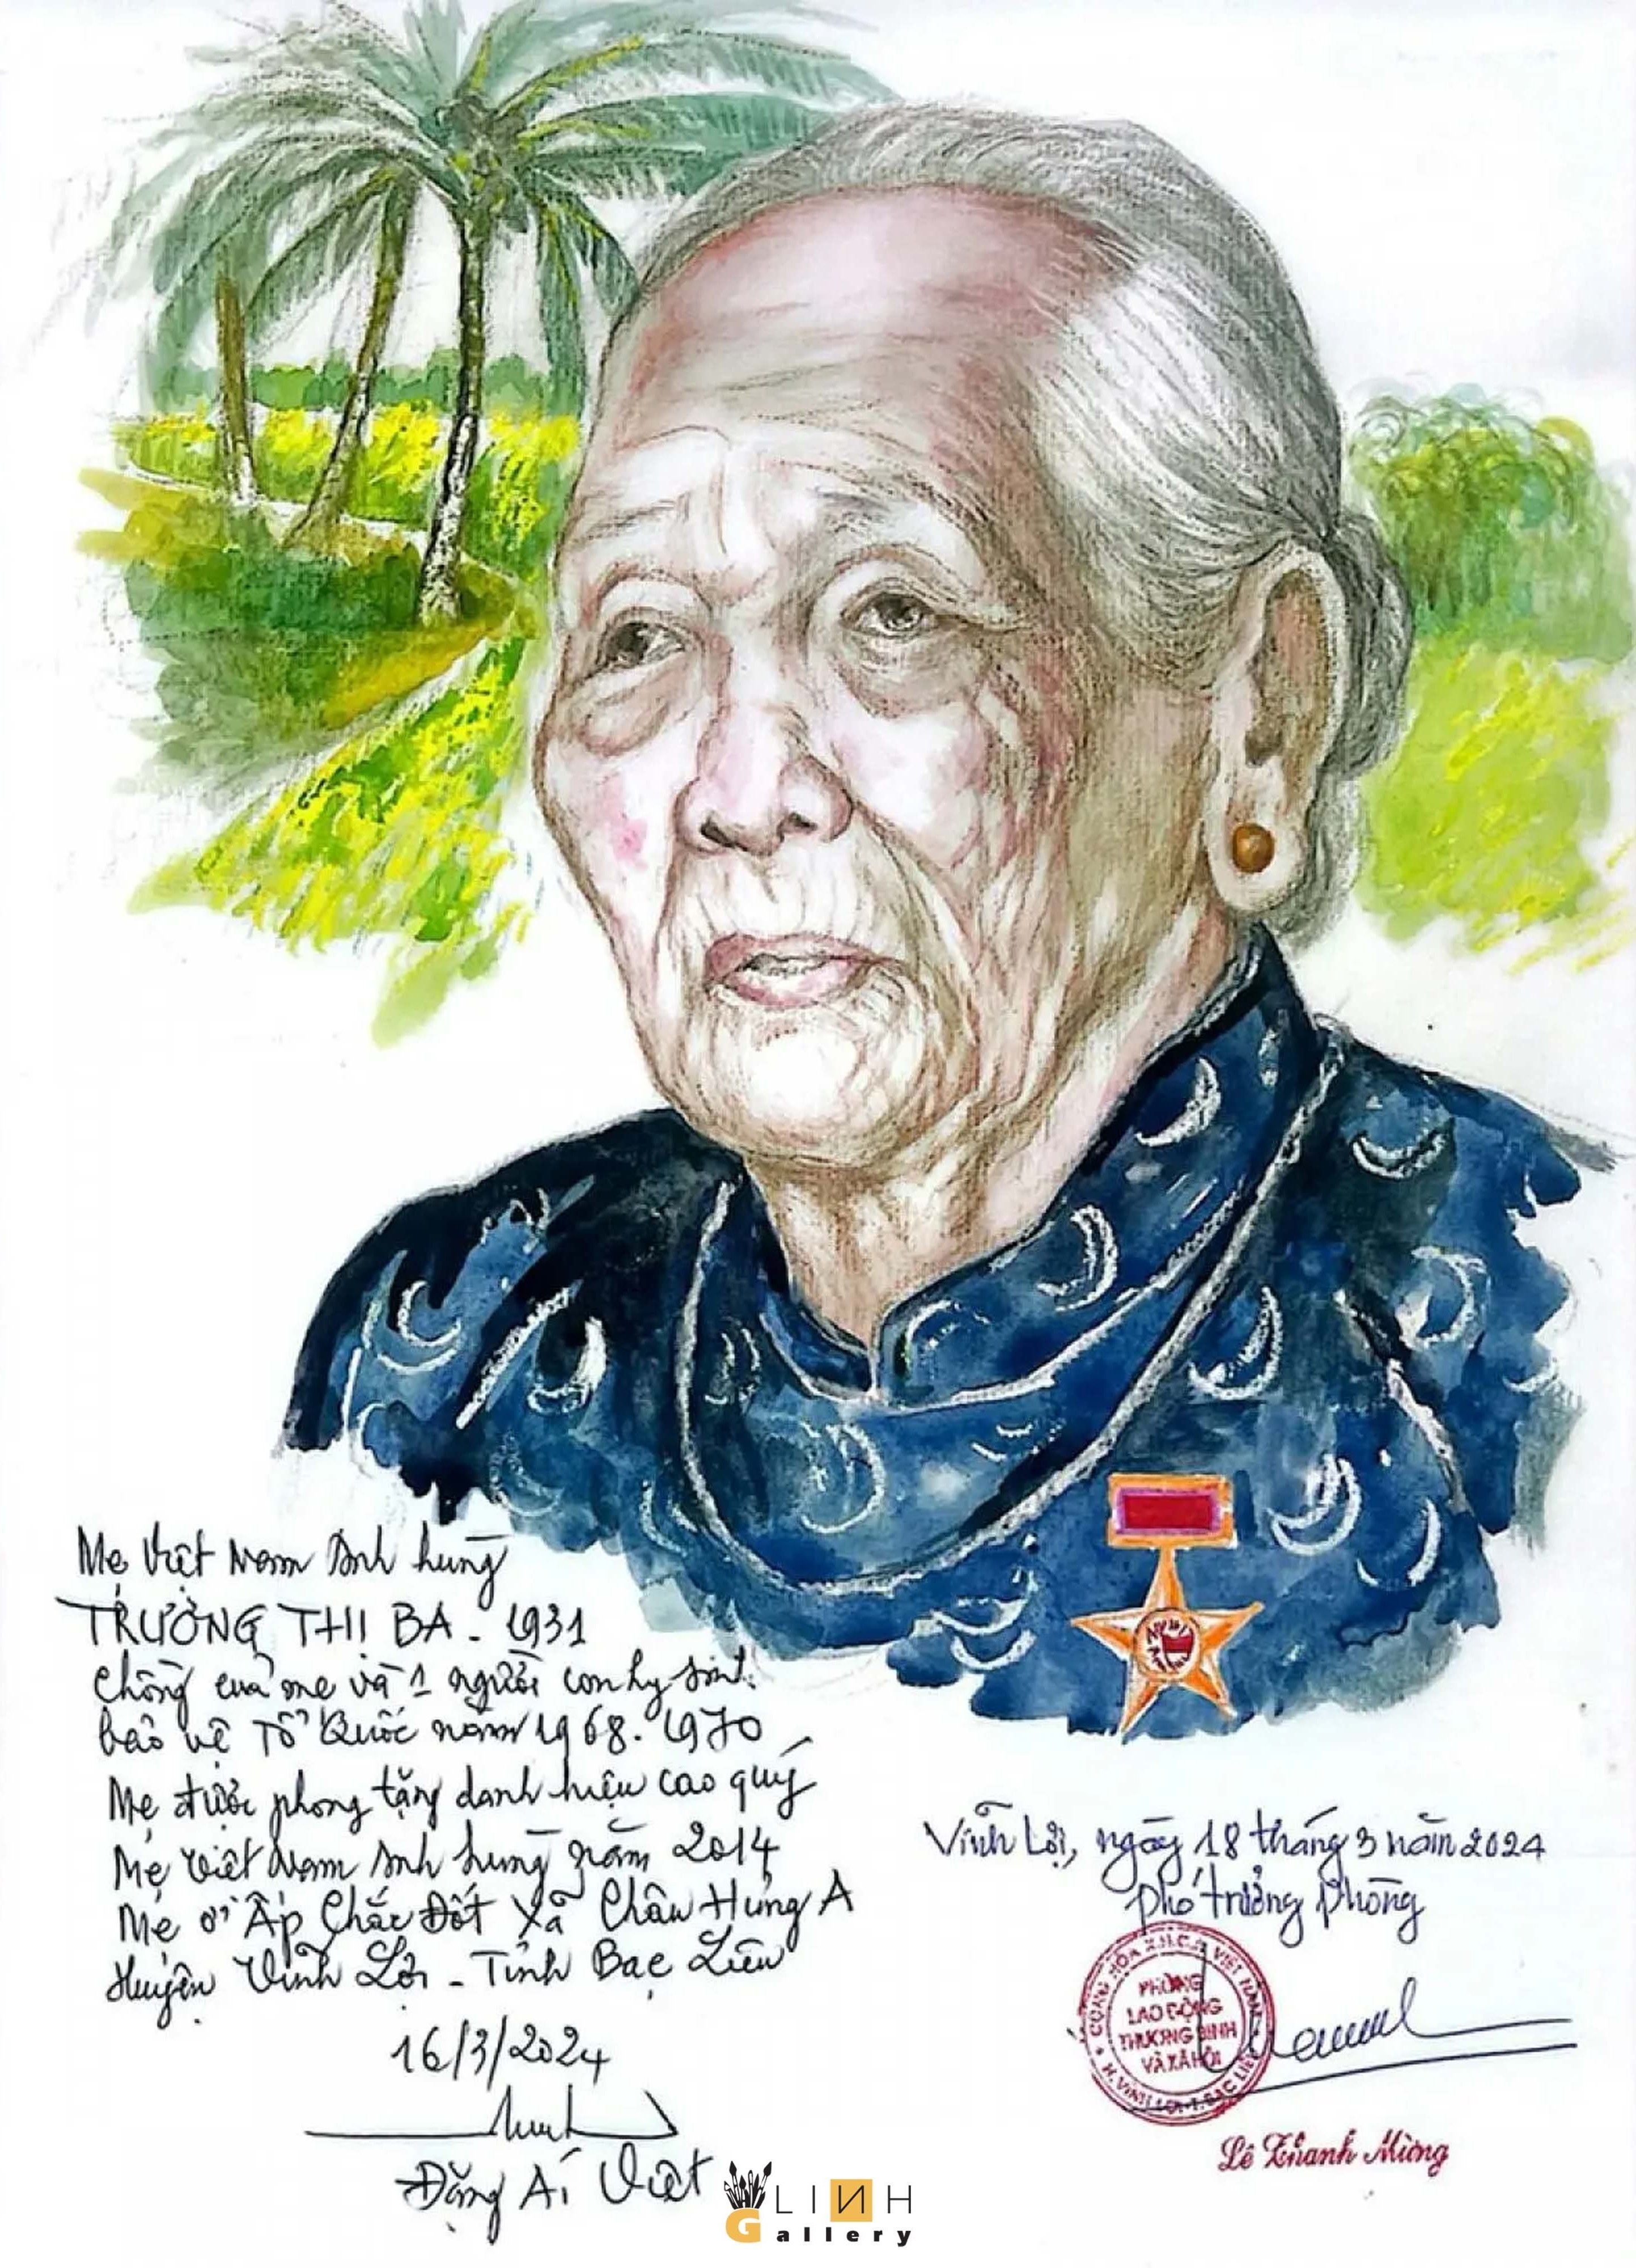 Mẹ Việt Nam Anh hùng
TRƯƠNG THỊ BA - 1931
Chồng của mẹ và 1 người con hy sinh
bảo vệ Tổ Quốc năm 1968. 1970
Mẹ được phong tặng danh hiệu cao quý
Mẹ Việt Nam Anh hùng năm 2014
Mẹ ở Ấp Chắc Đốt Xã Châu Hưng A
Huyện Vĩnh Lợi - Tỉnh Bạc Liêu
16/3/2024
Đặng Ái Việt
Vĩnh Lợi, ngày 18 tháng 3 năm 2024
Phó trưởng phòng
CỘNG HÒA X.H.C.N VIỆT NAM
PHÒNG
LAO ĐỘNG
THƯƠNG BINH
VÀ XÃ HỘI
H. VĨNH LỢI - T. BẠC LIÊU
Lê Thanh Mừng
LINH
Gallery